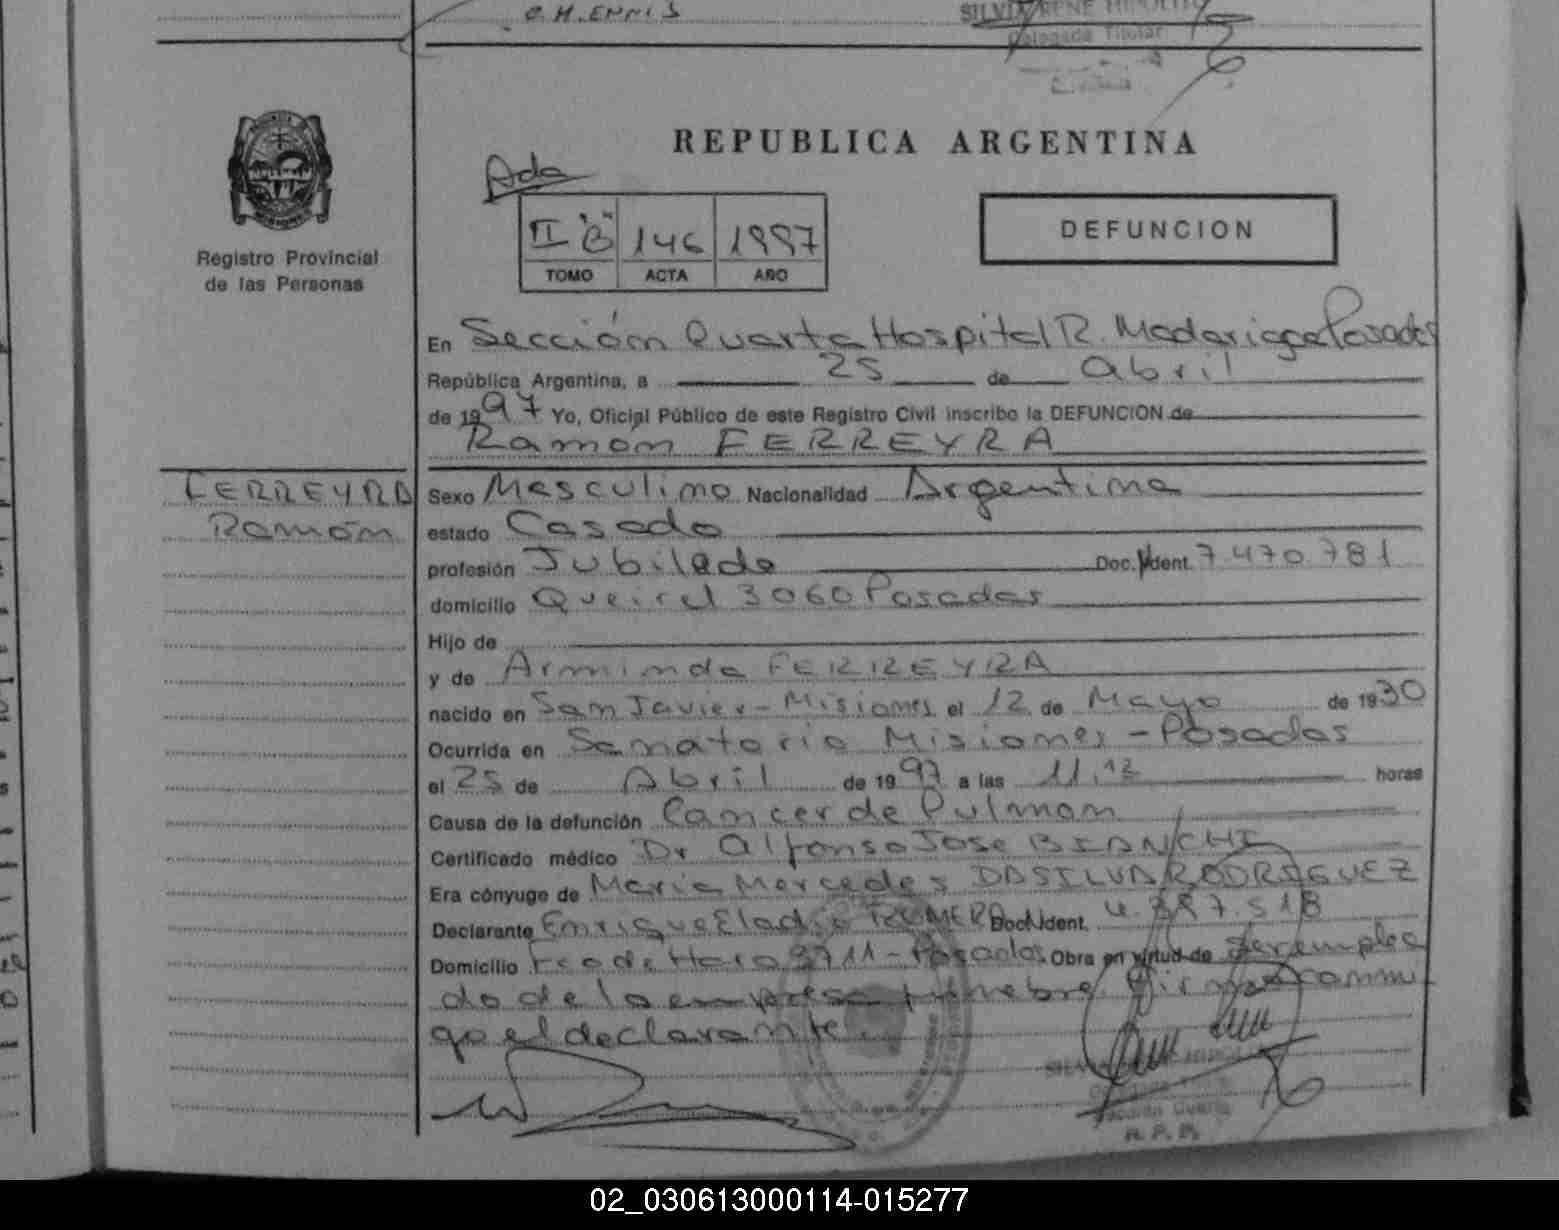 C.H. ENNIS
SILVIA IRENE HIPOLITO
Delegada Titular
REPUBLICA ARGENTINA
Ada
II "B" 146 1997
TOMO ACTA AÑO
DEFUNCION
Registro Provincial
de las Personas
En Sección Quarta Hospital R. Madariaga Posadas
República Argentina, a 25 de Abril
de 1997 Yo, Oficial Público de este Registro Civil inscribo la DEFUNCION de
Ramón FERREYRA
FERREYRA
Ramón
Sexo Masculino Nacionalidad Argentina
estado Casado
profesión Jubilado Doc. Ident. 7.470.781
domicilio Queirel 3060 Posadas
Hijo de
y de Arminda FERREYRA
nacido en San Javier - Misiones el 12 de Mayo de 1930
Ocurrida en Sanatorio Misiones - Posadas
el 25 de Abril de 1997 a las 11,12 horas
Causa de la defunción Cancer de Pulmon
Certificado médico Dr Alfonso Jose BIANCHI
Era cónyuge de Maria Mercedes DASILVA RODRIGUEZ
Declarante Enrique Eladio ROMERO Doc. Ident. 4. 518
Domicilio Fco de Haro 3711 - Posadas Obra en virtud de ser emplea
do de la empresa funebre. Firma conmi
go el declarante.
SILVIA HIPOLITO
Sección Cuarta
R. P. P.
02_030613000114-015277